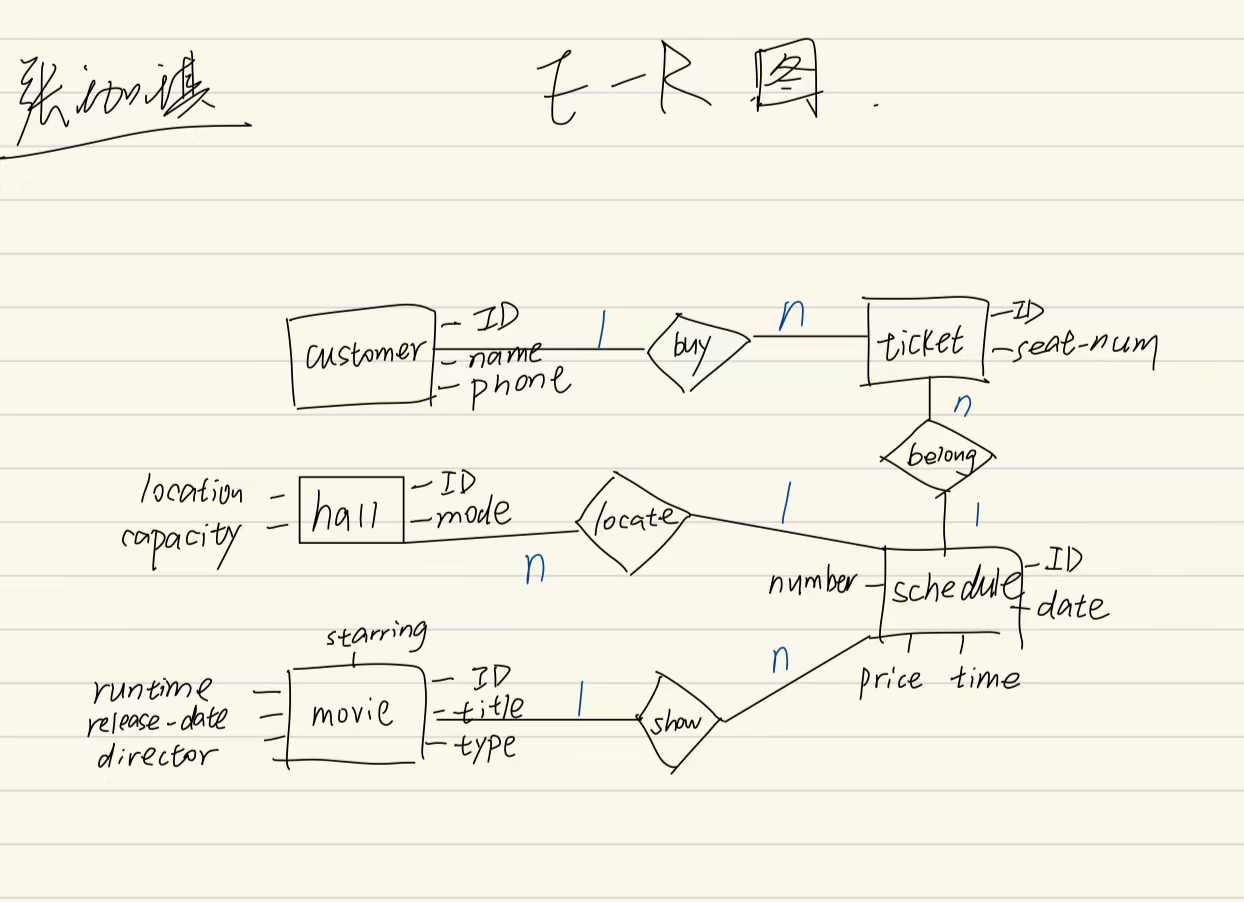 张
E-R 图.
customer
ID
name
phone
1
buy
n
ticket
ID
seat-num
n
belong
1
location
capacity
hall
ID
mode
n
locate
1
number
schedule
ID
date
price time
starring
runtime
release-date
director
movie
ID
title
type
1
show
n